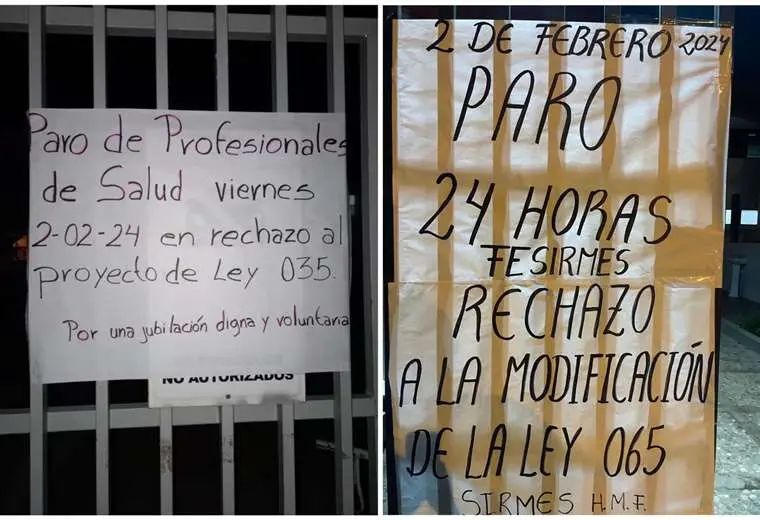 Paro de Profesionales
de Salud viernes
2-02-24 en rechazo al
proyecto de Ley 035.
Por una jubilación digna y voluntaria
NO AUTORIZADOS
2 DE FEBRERO 2024
PARO
24 HORAS
FESIRMES
RECHAZO
A LA MODIFICACIÓN
DE LA LEY 065
SIRMES H.M.F.